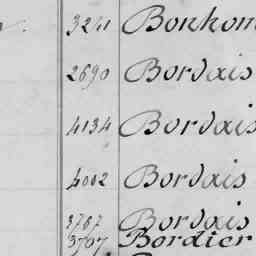 3241 Bonhom
2690 Bordais
4134 Bordais
4002 Bordais
3767 Bordais
3707 Bordier